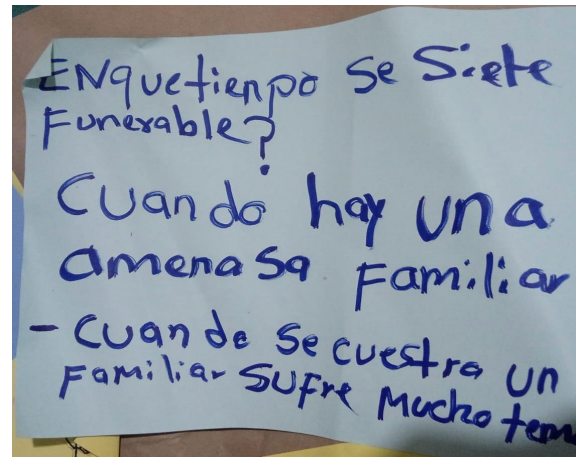 ENquetienpo se Siete
Funerable?
Cuando hay una
amenasa Familiar
- Cuando Secuestra un
Familiar SUFre Mucho